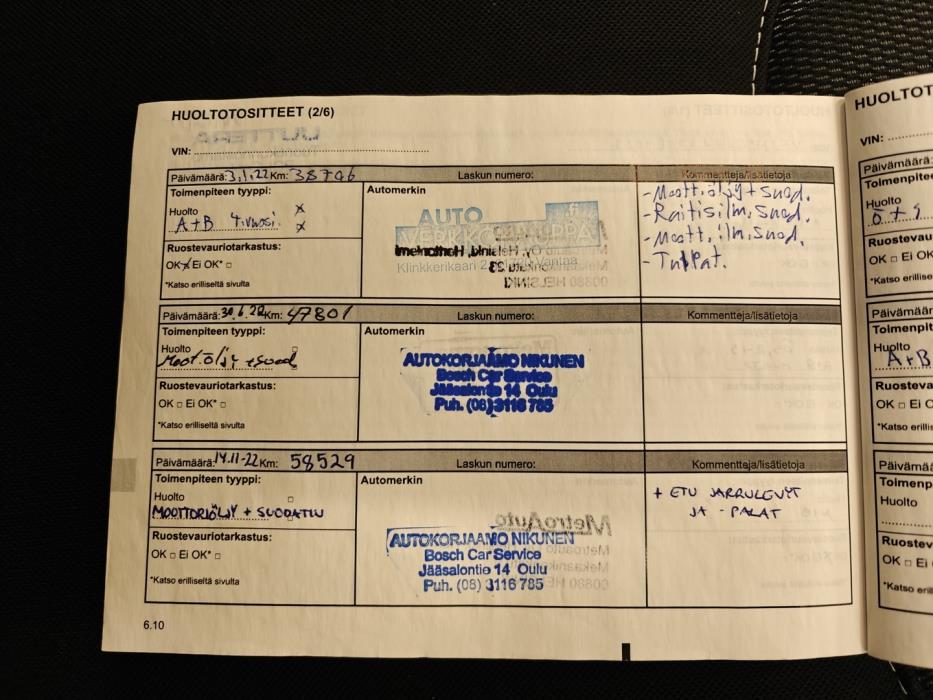 HUOLTOTOSITTEET (2/6)
VIN:
Päivämäärä: 3.1.22 Km: 38746 Laskun numero: Kommentteja/lisätietoja
Toimenpiteen tyyppi: Automerkin
Huolto
A+B 4.vuosi.
Ruostevauriotarkastus:
OK Ei OK*
*Katso erilliseltä sivulta
AUTO
VERKKOKAUPPA
Klinkkerikaari 2 01720 Vantaa
- Moott.öljy + suod.
- Raitisilm.suod.
- Moott.ilm.suod.
- Tulpat.
Päivämäärä: 30.6.22 Km: 47801 Laskun numero: Kommentteja/lisätietoja
Toimenpiteen tyyppi: Automerkin
Huolto
Moot.öljy + suod
Ruostevauriotarkastus:
OK Ei OK*
*Katso erilliseltä sivulta
AUTOKORJAAMO NIKUNEN
Bosch Car Service
Jääsalontie 14 Oulu
Puh. (08) 3116 785
Päivämäärä: 14.11-22 Km: 58529 Laskun numero: Kommentteja/lisätietoja
Toimenpiteen tyyppi: Automerkin
Huolto
MOOTTORIÖLJY + SUODATIN
Ruostevauriotarkastus:
OK Ei OK*
*Katso erilliseltä sivulta
AUTOKORJAAMO NIKUNEN
Bosch Car Service
Jääsalontie 14 Oulu
Puh. (08) 3116 785
+ ETU JARRULEVYT
JA - PALAT
6.10
HUOLTOT
VIN:
Päivämäärä:
Toimenpitee
Huolto
Ruostevau
OK Ei OK
*Katso erillise
Päivämäärä
Toimenpit
Huolto
A+B
Ruosteva
OK Ei
*Katso erillis
Päivämää
Toimenp
Huolto
Ruostev
OK Ei
*Katso er